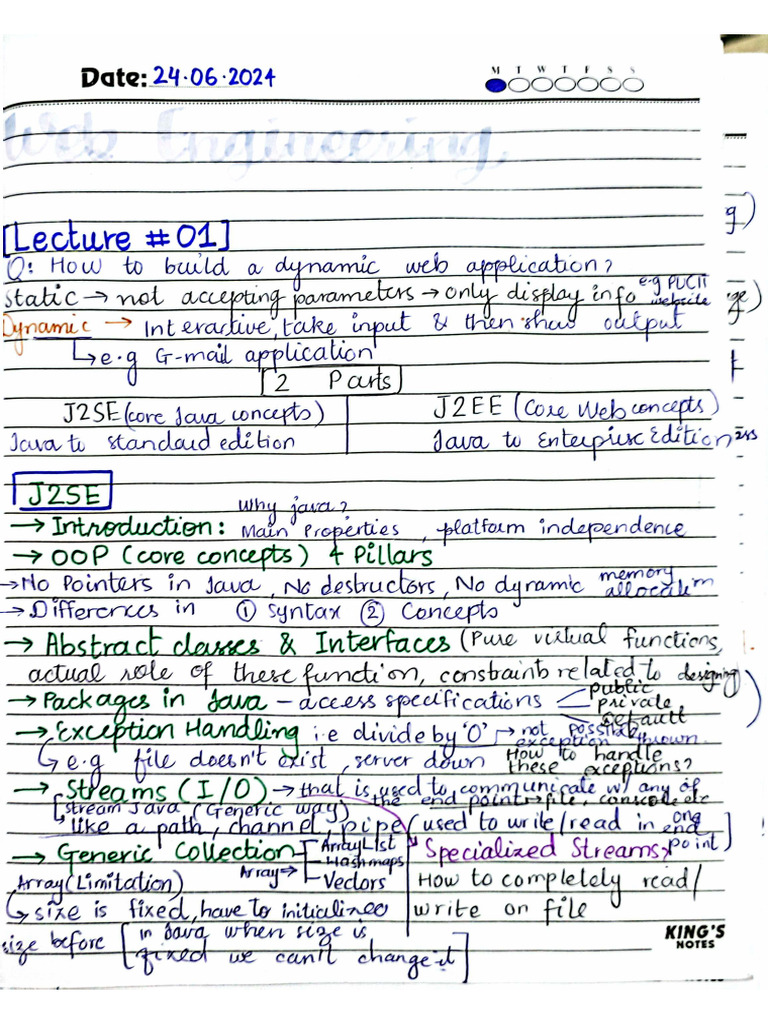 Date: 24.06.2024
M T W T F S S
Web Engineering
[Lecture #01]
Q: How to build a dynamic web application?
static → not accepting parameters → only display info e.g PUCIT website
Dynamic → Interactive, take input & then show output
↳ e.g G-mail application
2 Parts
J2SE (core Java concepts)
J2EE (Core Web concepts)
Java to standard edition
Java to Enterprise Edition
J2SE
Why java?
→ Introduction: Main Properties, platform independence
→ OOP (core concepts) 4 Pillars
→ No Pointers in Java, No destructors, No dynamic memory allocation
→ Differences in ① Syntax ② Concepts
→ Abstract classes & Interfaces (Pure virtual functions,
actual role of these function, constraints related to designing
→ Packages in Java - access specifications public
private
default
→ Exception Handling i.e divide by '0' → not possible
exception thrown.
↳ e.g file doesn't exist, server down How to handle
these exceptions?
→ Streams (I/O) → that is used to communicate w/ any of
the end point → file, console etc
[stream Java (Generic way)
↳ like a path, channel, pipe (used to write/read in one end point)]
→ Generic Collection ArrayList
Hashmaps
Vectors
Array →
Specialized Streams
Array (Limitation)
How to completely read/
↳ size is fixed, have to initialize
write on file
size before [in Java when size is
fixed we can't change it]
KING'S
NOTES